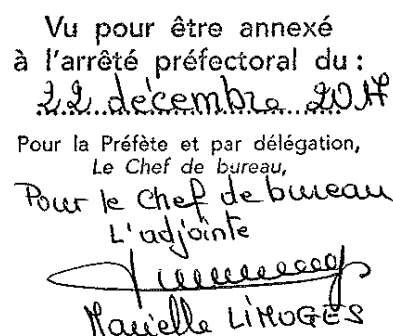 Vu pour être annexé
à l'arrêté préfectoral du :
22 décembre 2017
Pour la Préfète et par délégation,
Le Chef de bureau,
Pour le Chef de bureau
L'adjointe
Marielle LIMOGES